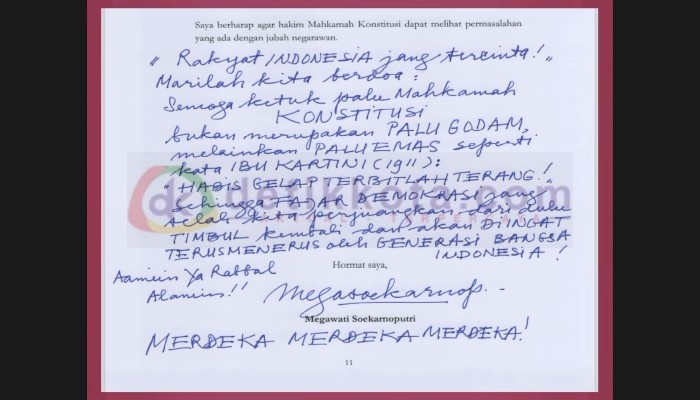 Saya berharap agar hakim Mahkamah Konstitusi dapat melihat permasalahan
yang ada dengan jubah negarawan.
" Rakyat INDONESIA jang tercinta! "
Marilah kita berdoa :
Semoga ketuk palu Mahkamah
KONSTITUSI
bukan merupakan PALU GODAM,
melainkan PALU EMAS seperti
kata IBU KARTINI (1911) :
" HABIS GELAP TERBITLAH TERANG! "
Sehingga FAJAR DEMOKRASI yang
telah kita perjuangkan dari dulu
TIMBUL kembali dan akan DIINGAT
TERUSMENERUS oleh GENERASI BANGSA
INDONESIA !
Hormat saya,
Aamiin Ya Rabbal
Alamiin!!
Megawati Soekarnoputri
MERDEKA MERDEKA MERDEKA!
11
detikkota.com